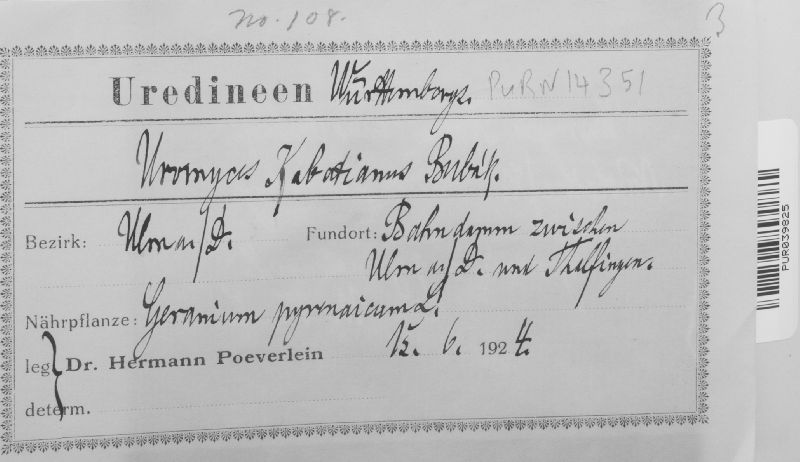 No. 108.
3
Uredineen Württembergs. PURN14351
Uromyces Kabatianus Bubák.
Bezirk: Ulm a/D. Fundort: Bahndamm zwischen
Ulm a/D. und Thalfingen.
Nährpflanze: Geranium pyrenaicum L.
leg. Dr. Hermann Poeverlein 15. 6. 1924.
determ.
PUR039825